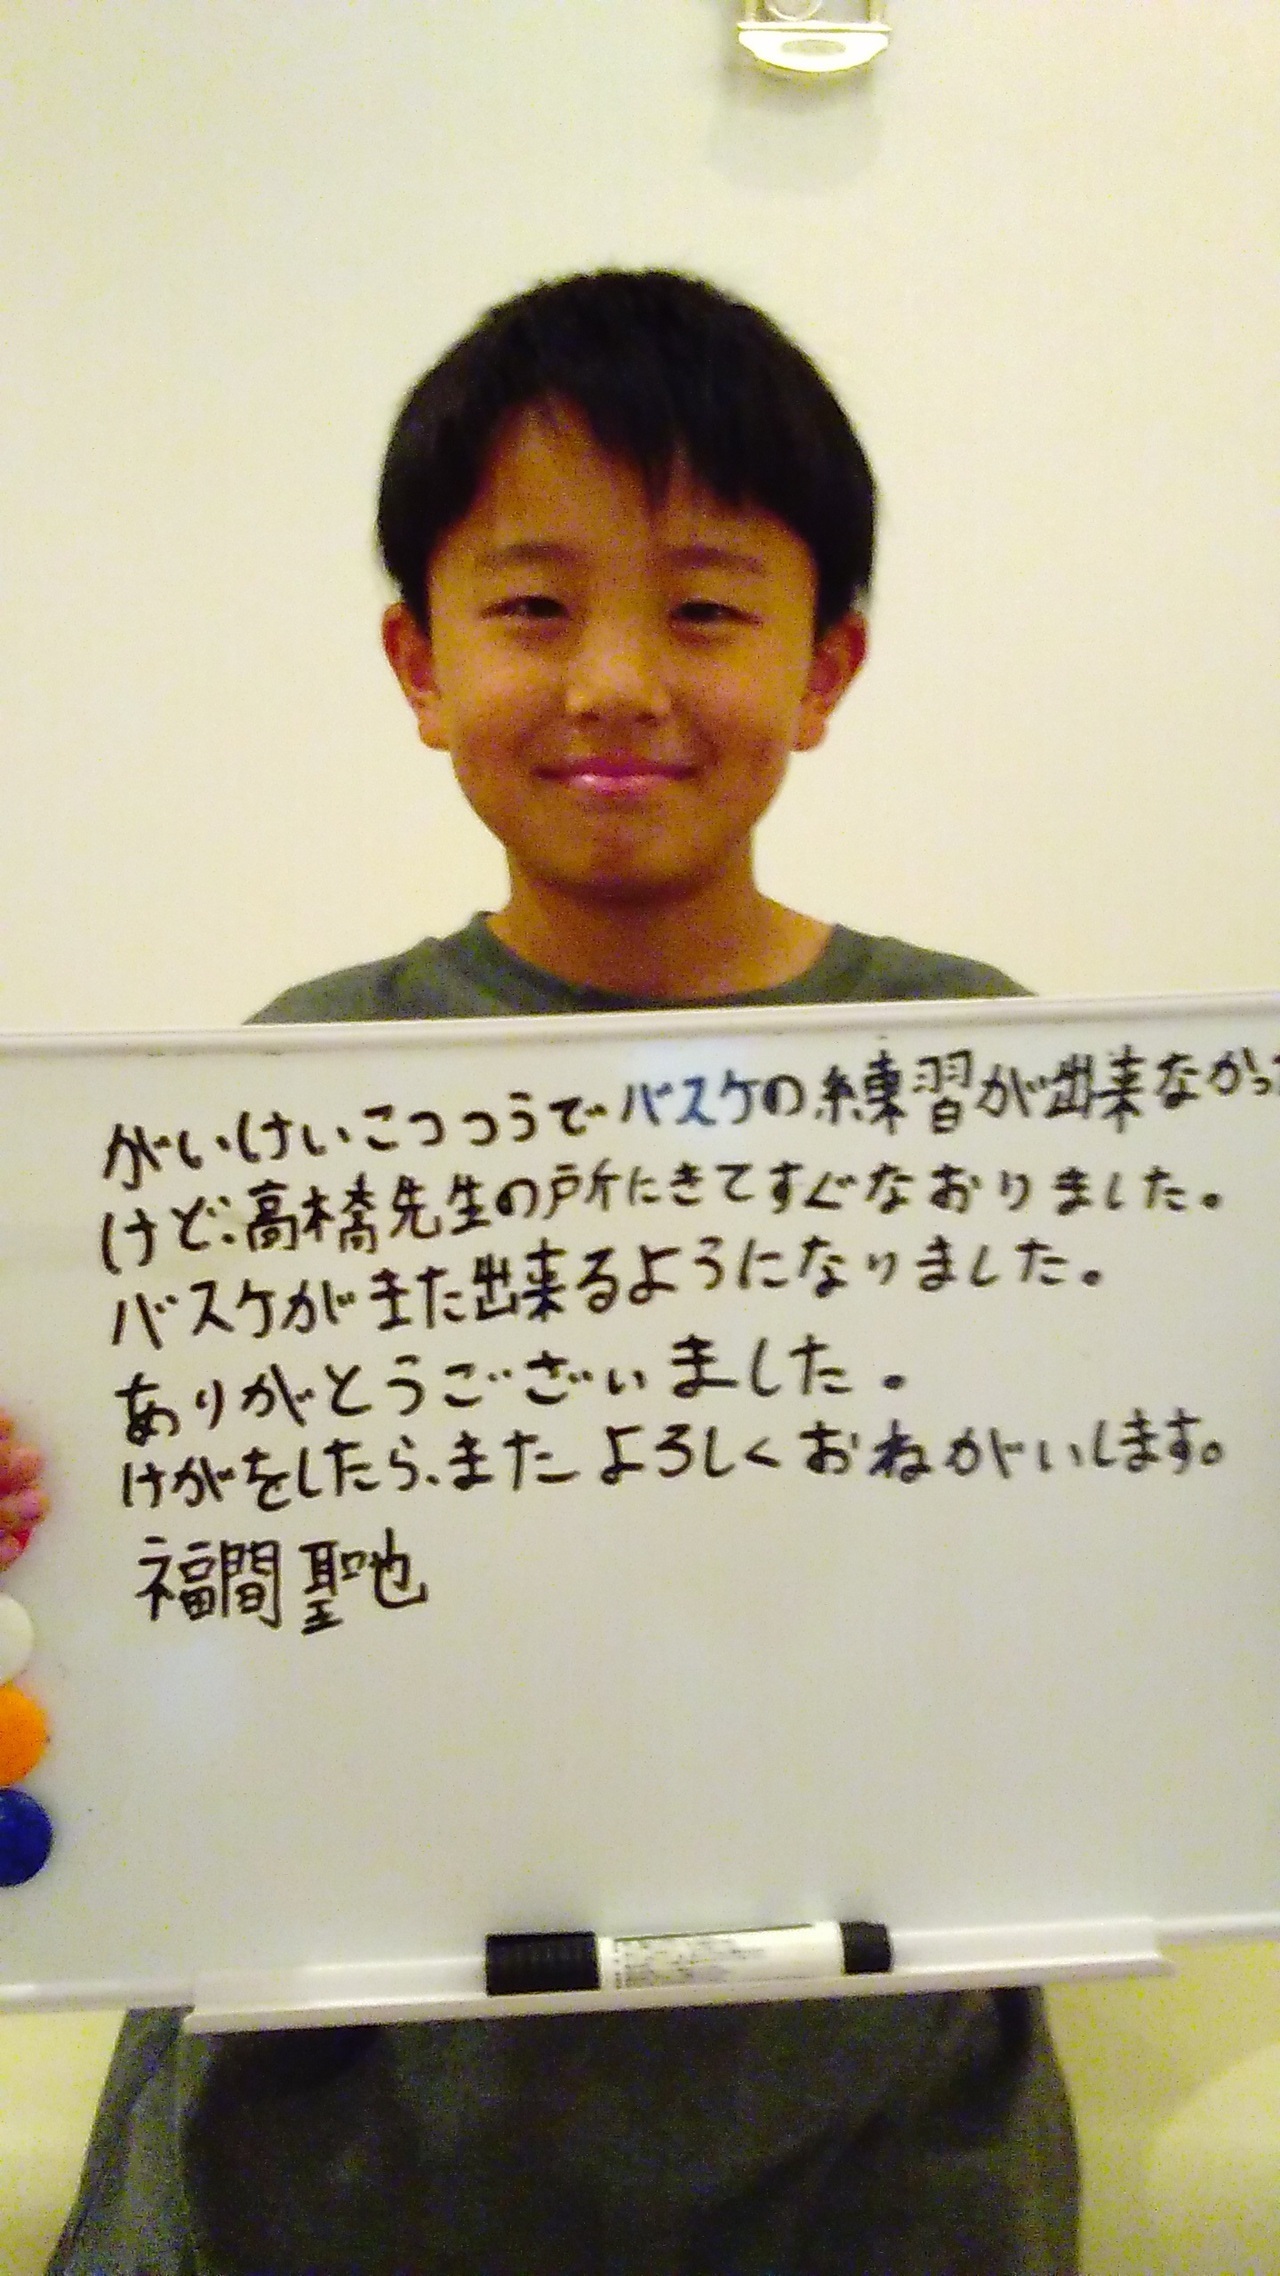 がいけいこつつうでバスケの練習が出来なかった
けど、高橋先生の所にきてすぐなおりました。
バスケがまた出来るようになりました。
ありがとうございました。
けがをしたら、また よろしくおねがいします。
福間 聖也